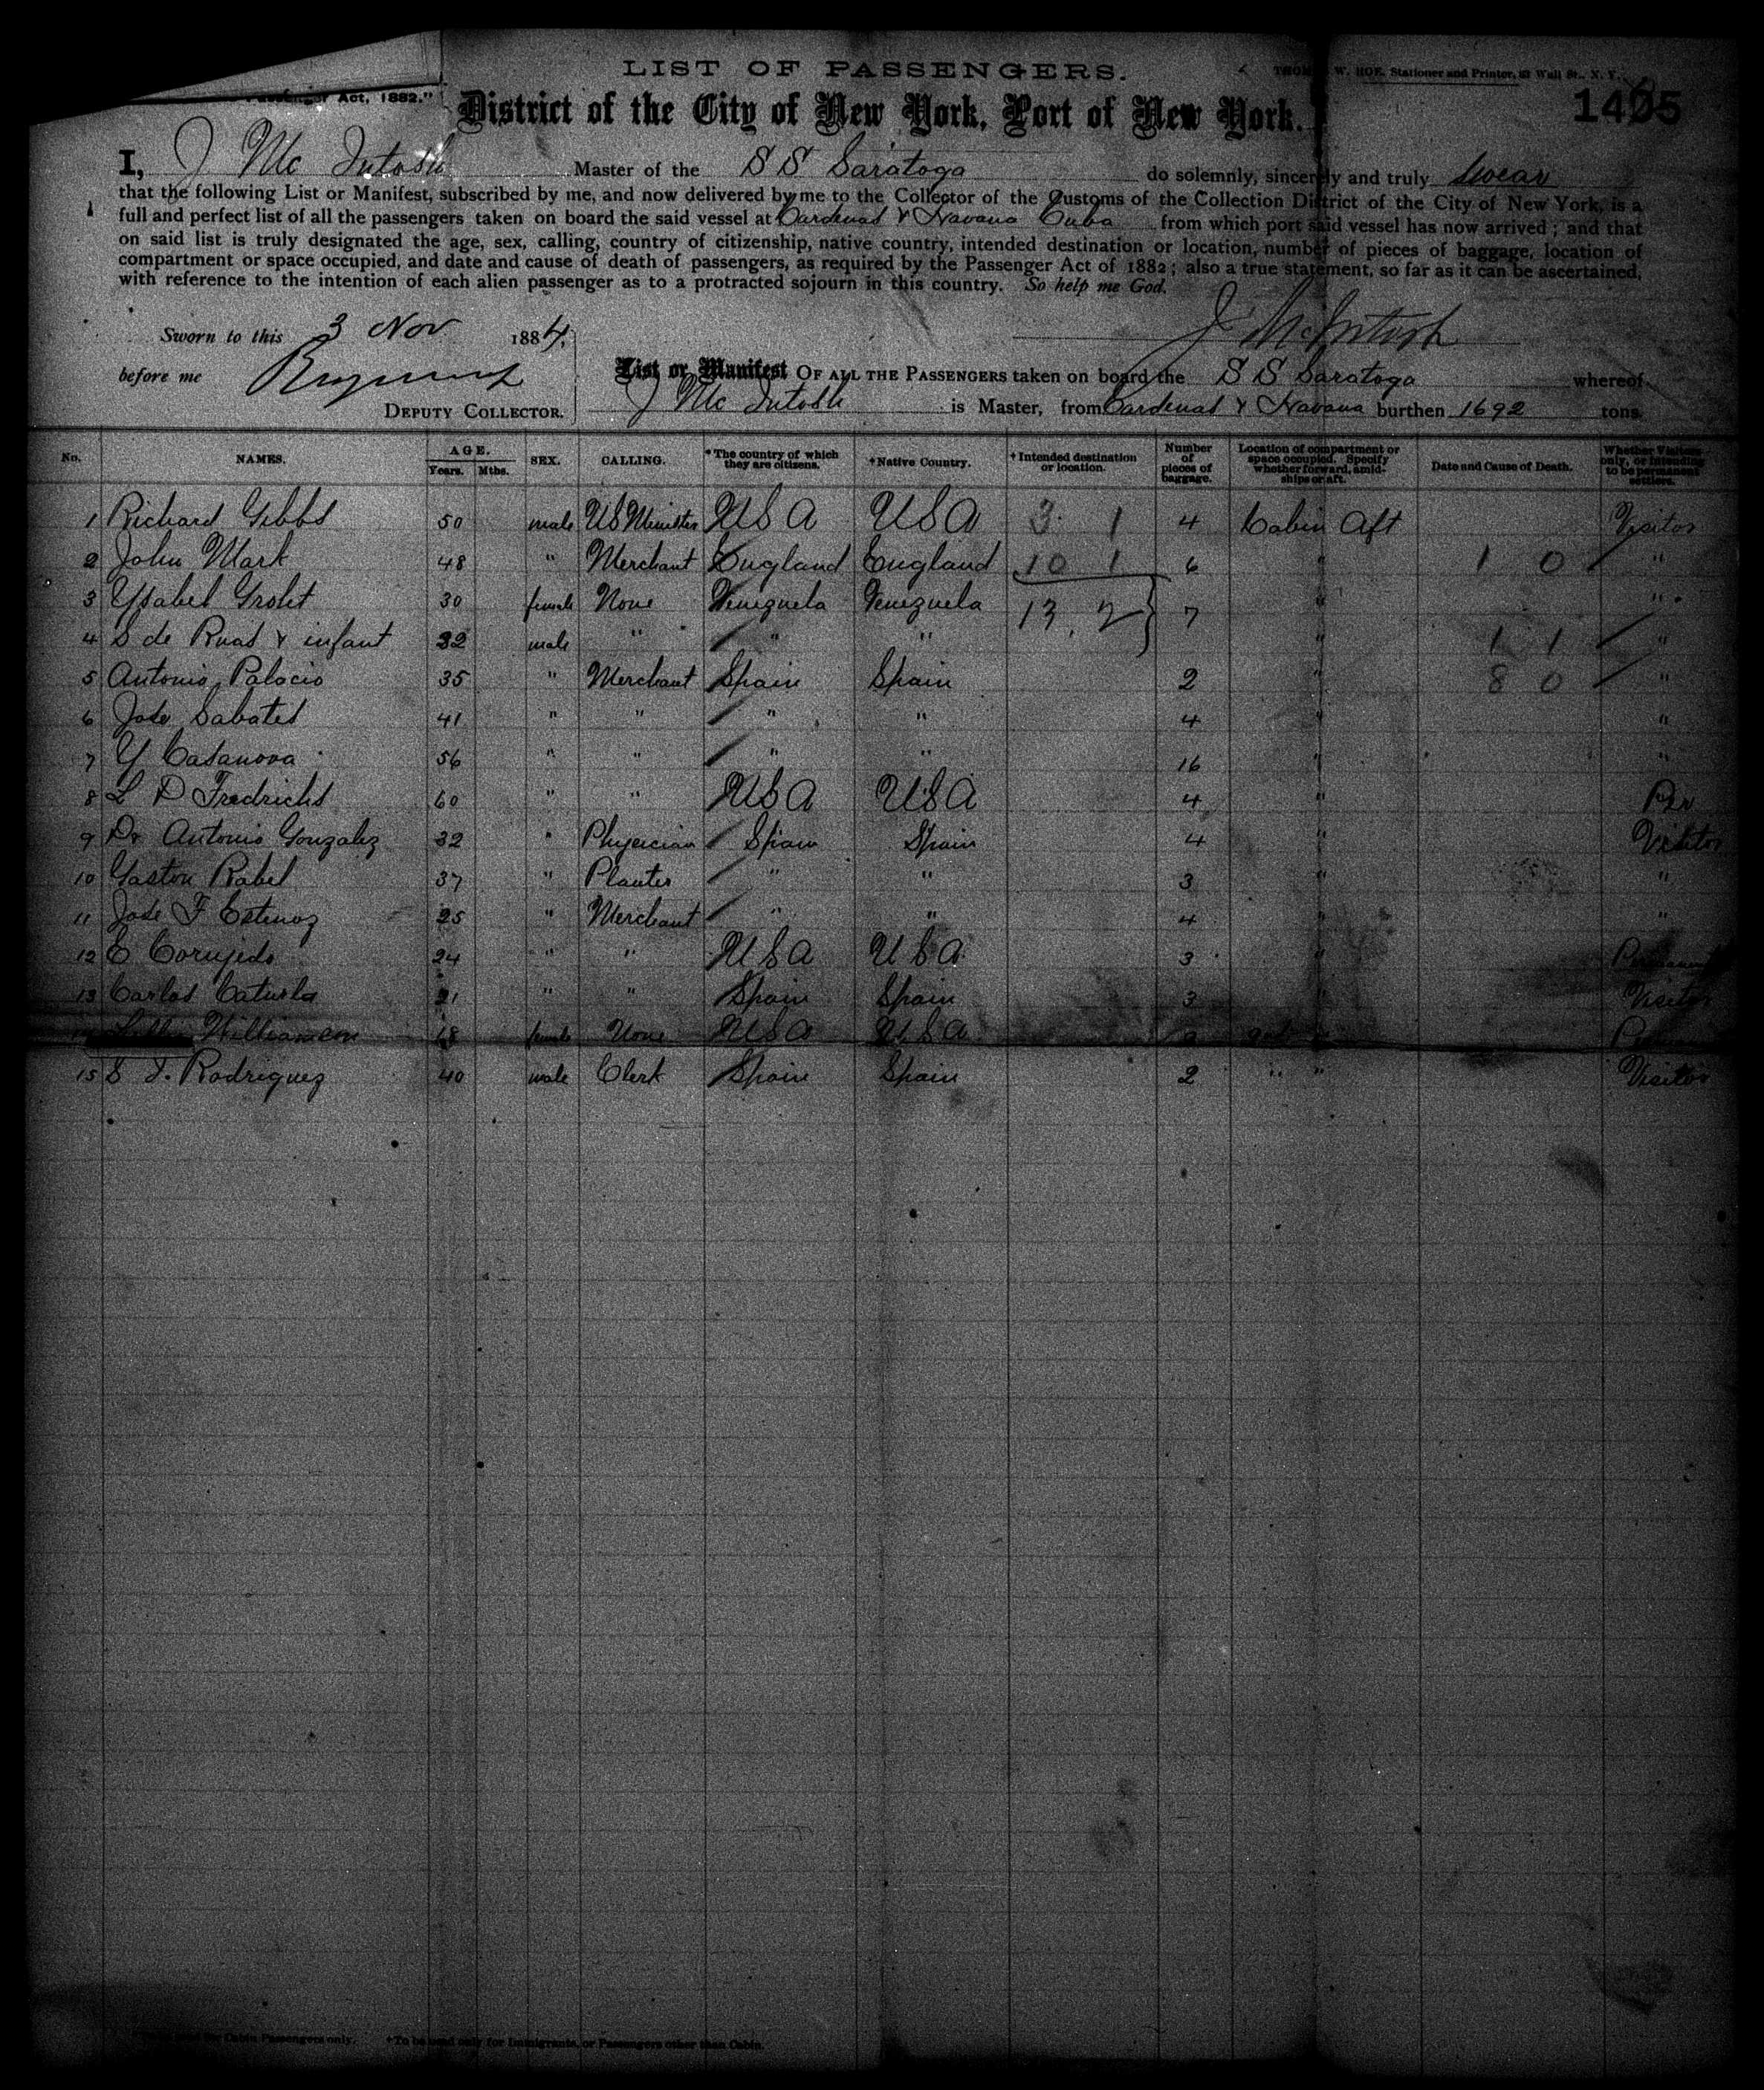 LIST OF PASSENGERS.
W. HOE, Stationer and Printer, Wall St., N. Y.
Passenger Act, 1882."
District of the City of New York, Port of New York.
1495
I, J Mc Intosh Master of the S S Saratoga do solemnly, sincerely and truly swear
that the following List or Manifest, subscribed by me, and now delivered by me to the Collector of the Customs of the Collection District of the City of New York, is a
full and perfect list of all the passengers taken on board the said vessel at Cardenas & Havana Cuba from which port said vessel has now arrived; and that
on said list is truly designated the age, sex, calling, country of citizenship, native country, intended destination or location, number of pieces of baggage, location of
compartment or space occupied, and date and cause of death of passengers, as required by the Passenger Act of 1882; also a true statement, so far as it can be ascertained,
with reference to the intention of each alien passenger as to a protracted sojourn in this country. So help me God.
Sworn to this 3 Nov 1884,
J McIntosh
before me
DEPUTY COLLECTOR.
List or Manifest OF ALL THE PASSENGERS taken on board the S S Saratoga whereof
J Mc Intosh is Master, from Cardenas & Havana burthen 1692 tons.
No. NAMES. AGE. Years. Mths. SEX. CALLING. *The country of which they are citizens. †Native Country. †Intended destination or location. Number of pieces of baggage. Location of compartment or space occupied. Specify whether forward, amidships or aft. Date and Cause of Death. Whether Visitors only, or intending to be permanent settlers.
1 Richard Gibbs 50 male US Minister USA USA 3 1 4 Cabin Aft Visitor
2 John Mark 48 " Merchant England England 10 1 6 " 1 0 "
3 Ysabel Grolit 30 female None Venezuela Venezuela 13 2 7 " "
4 S de Ruas & infant 32 male " " " " 1 1 "
5 Antonio Palacio 35 " Merchant Spain Spain 2 " 8 0 "
6 Jose Sabates 41 " " " " 4 " "
7 Y Casanova 56 " " " " 16 " "
8 L D Fredricks 60 " " USA USA 4 " Per
9 Dr Antonio Gonzalez 32 " Physician Spain Spain 4 " Visitor
10 Gaston Rabel 37 " Planter " " 3 " "
11 Jose F Estenoz 25 " Merchant " " 4 " "
12 E Corujedo 24 " " USA USA 3 " Permanent
13 Carlos Caturla 21 " " Spain Spain 3 " Visitor
Williamson female None USA USA
15 S J. Rodriguez 40 male Clerk Spain Spain 2 " " Visitor
for Cabin Passengers only. †To be used only for Immigrants, or Passengers other than Cabin.